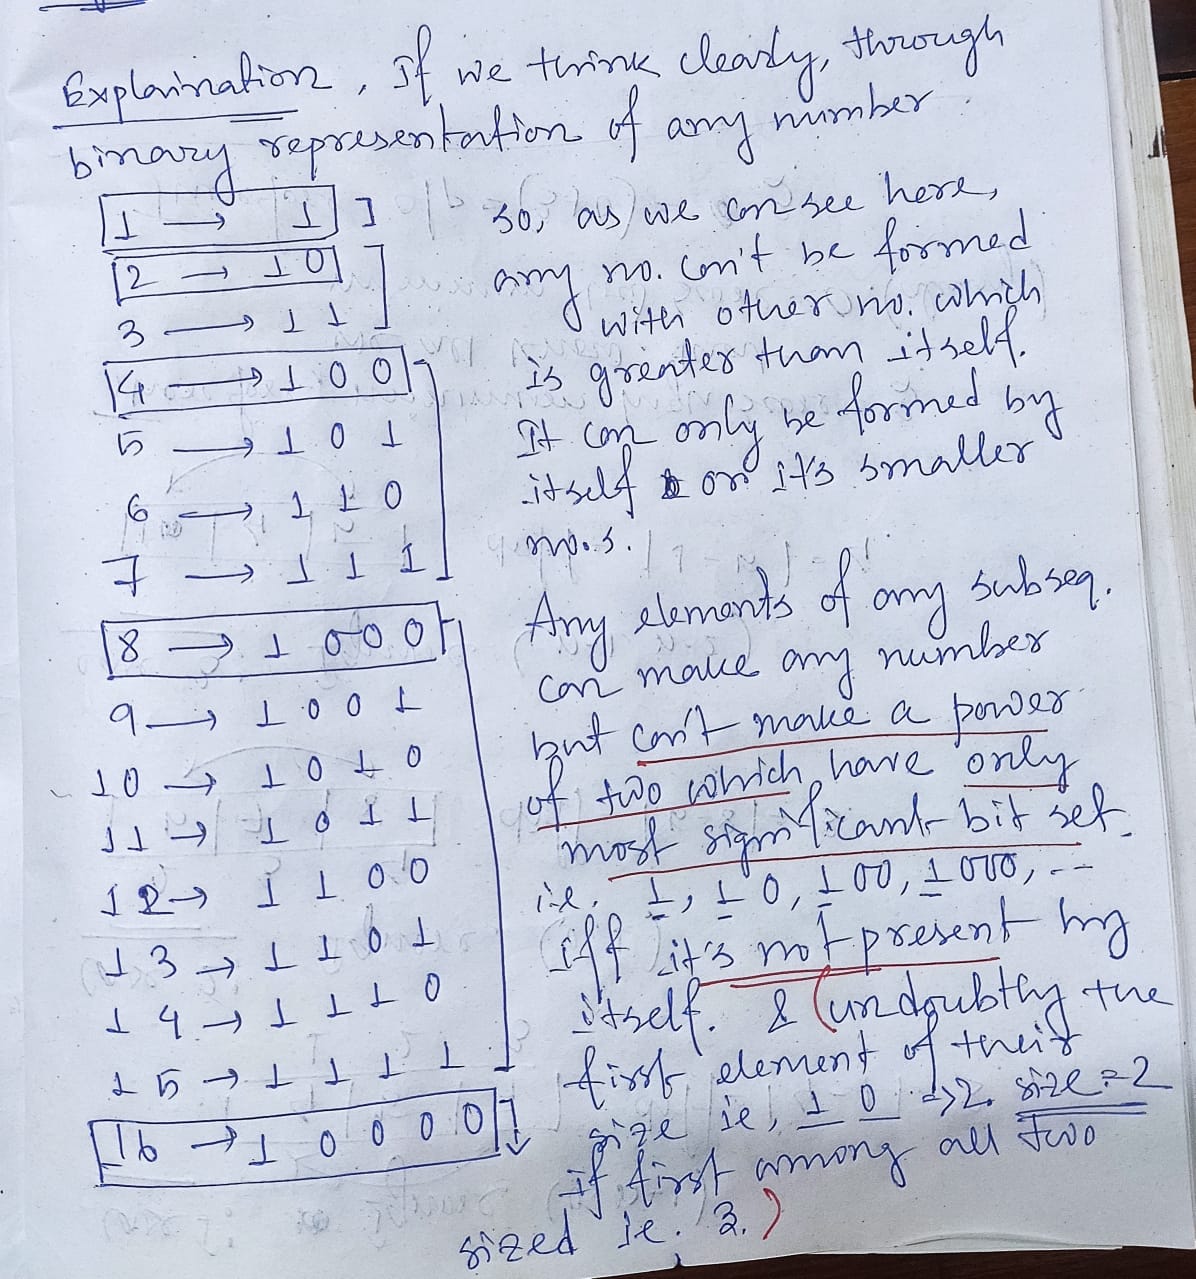 Explaination, If we think clearly, through
binary representation of any number
1 → 1
2 → 10
3 → 11
4 → 100
5 → 101
6 → 110
7 → 111
8 → 1000
9 → 1001
10 → 1010
11 → 1011
12 → 1100
13 → 1101
14 → 1110
15 → 1111
16 → 10000
so, as we can see here,
any no. can't be formed
with other no. which
is greater than itself.
It can only be formed by
itself or it's smaller
no.s.
Any elements of any subseq.
can make any number
but can't make a power
of two which have only
most significant bit set.
i.e. 1, 10, 100, 1000, --
iff it's not present by
itself. & (undoubtly the
first element of their
size ie, 10 => 2. size = 2
if first among all two
sized ie. 3.)